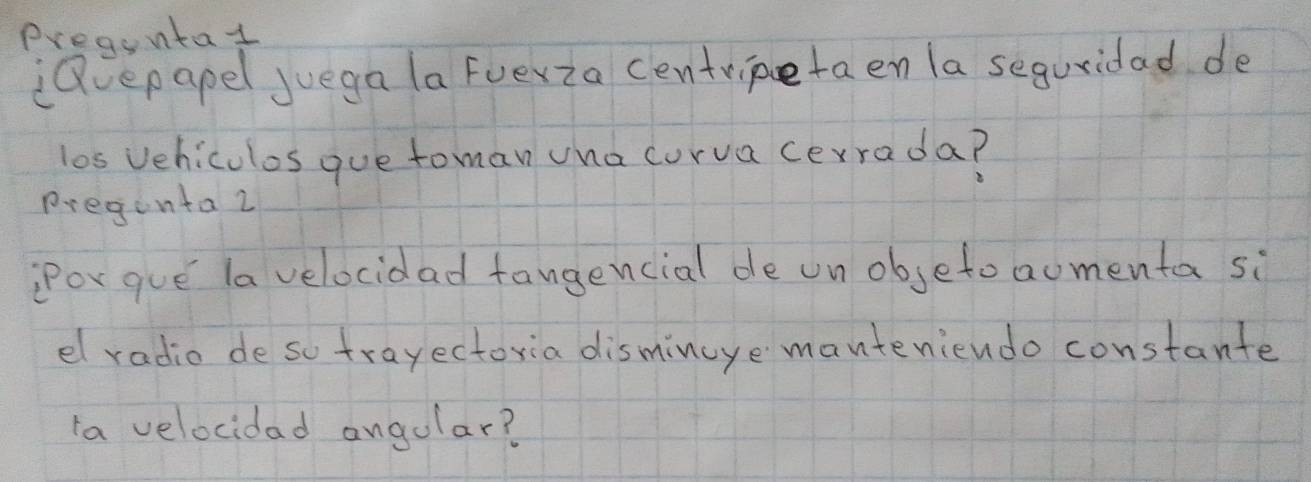 Pregunta 1
¿Que papel juega la Fuerza centripeta en la seguridad de
los vehiculos que toman una curva cerrada?
Pregunta 2
¿Por qué la velocidad tangencial de un objeto aumenta si
el radio de su trayectoria disminuye manteniendo constante
la velocidad angular?